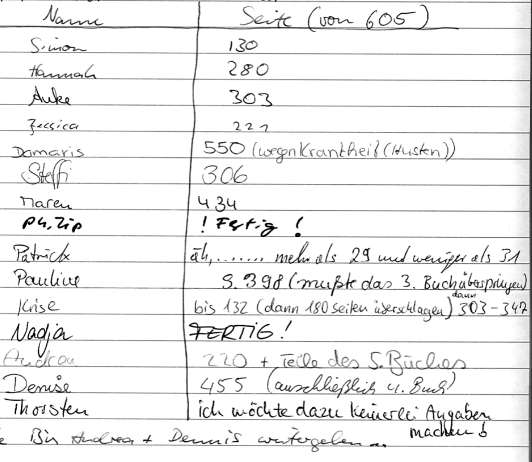 Name Seite (von 605)
Simon 130
Hannah 280
Auke 303
Jessica 221
Damaris 550 (wegen Krankheit (Husten))
Steffi 306
Maren 434
Philip ! Fertig !
Patrick äh,....... mehr als 29 und weniger als 31
Pauline S. 398 (mußte das 3. Buch überspringen)
Krise bis 132 (dann 180 seiten überschlagen) dann 303-347
Nadja FERTIG!
Andrea 220 + Teile des 5. Buches
Denise 455 (auschließlich 4. Buch)
Thorsten ich möchte dazu keinerlei Angaben
machen
Bin Andrea + Dennis weitergeben